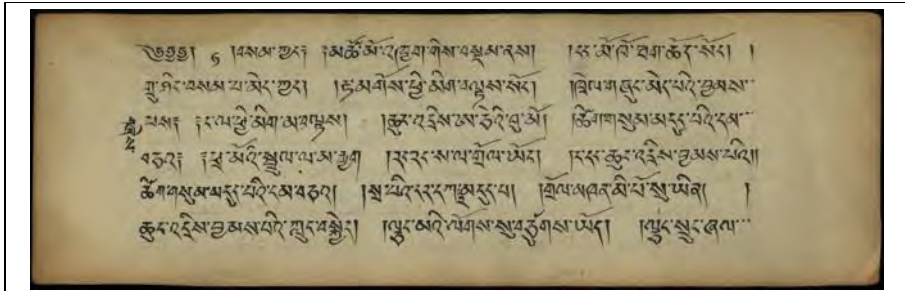 ༄༅༅། །བསམ་ཀྱང༌། །མཚོ་མོ་འཁྱག་གིས་བསྡམ་ནས། །ངང་མོ་ཁོ་ཐག་ཆོད་སོང༌། །
གྲུ་ཤིང་བསམས་པ་མེད་ཀྱང༌། །རྟ་མགོས་ཕྱི་མིག་བལྟས་སོང༌། །ཁྲེལ་གཞུང་མེད་པའི་བྱམས་
པས༌། །ང་ལ་ཕྱི་མིག་མ་བལྟས། །ཆུང་འདྲིས་ སུམ་མདུད་པའི་དམ་
བཅའ༌། །ཕྲ་མོའི་སྦྲུལ་ལ་མ་རྒྱག །རང་རང་ས་ལ་གྲོལ་ཡོང༌། །ང་དང་ཆུང་འདྲིས་བྱམས་པའི༎
ཚིག་གསུམ་མདུད་པའི་དམ་བཅའ། མདུད་པ། །གྲོལ་མཁན་མི་པོ་སུ་ཡིན། །
ཆུང་འདྲིས་བྱམས་པའི་རླུང་བསྐྱེད། །ལྕང་མའི་ལོགས་སུ་བཙུགས་ཡོད། །ལྕང་སྲུང་ཞལ་